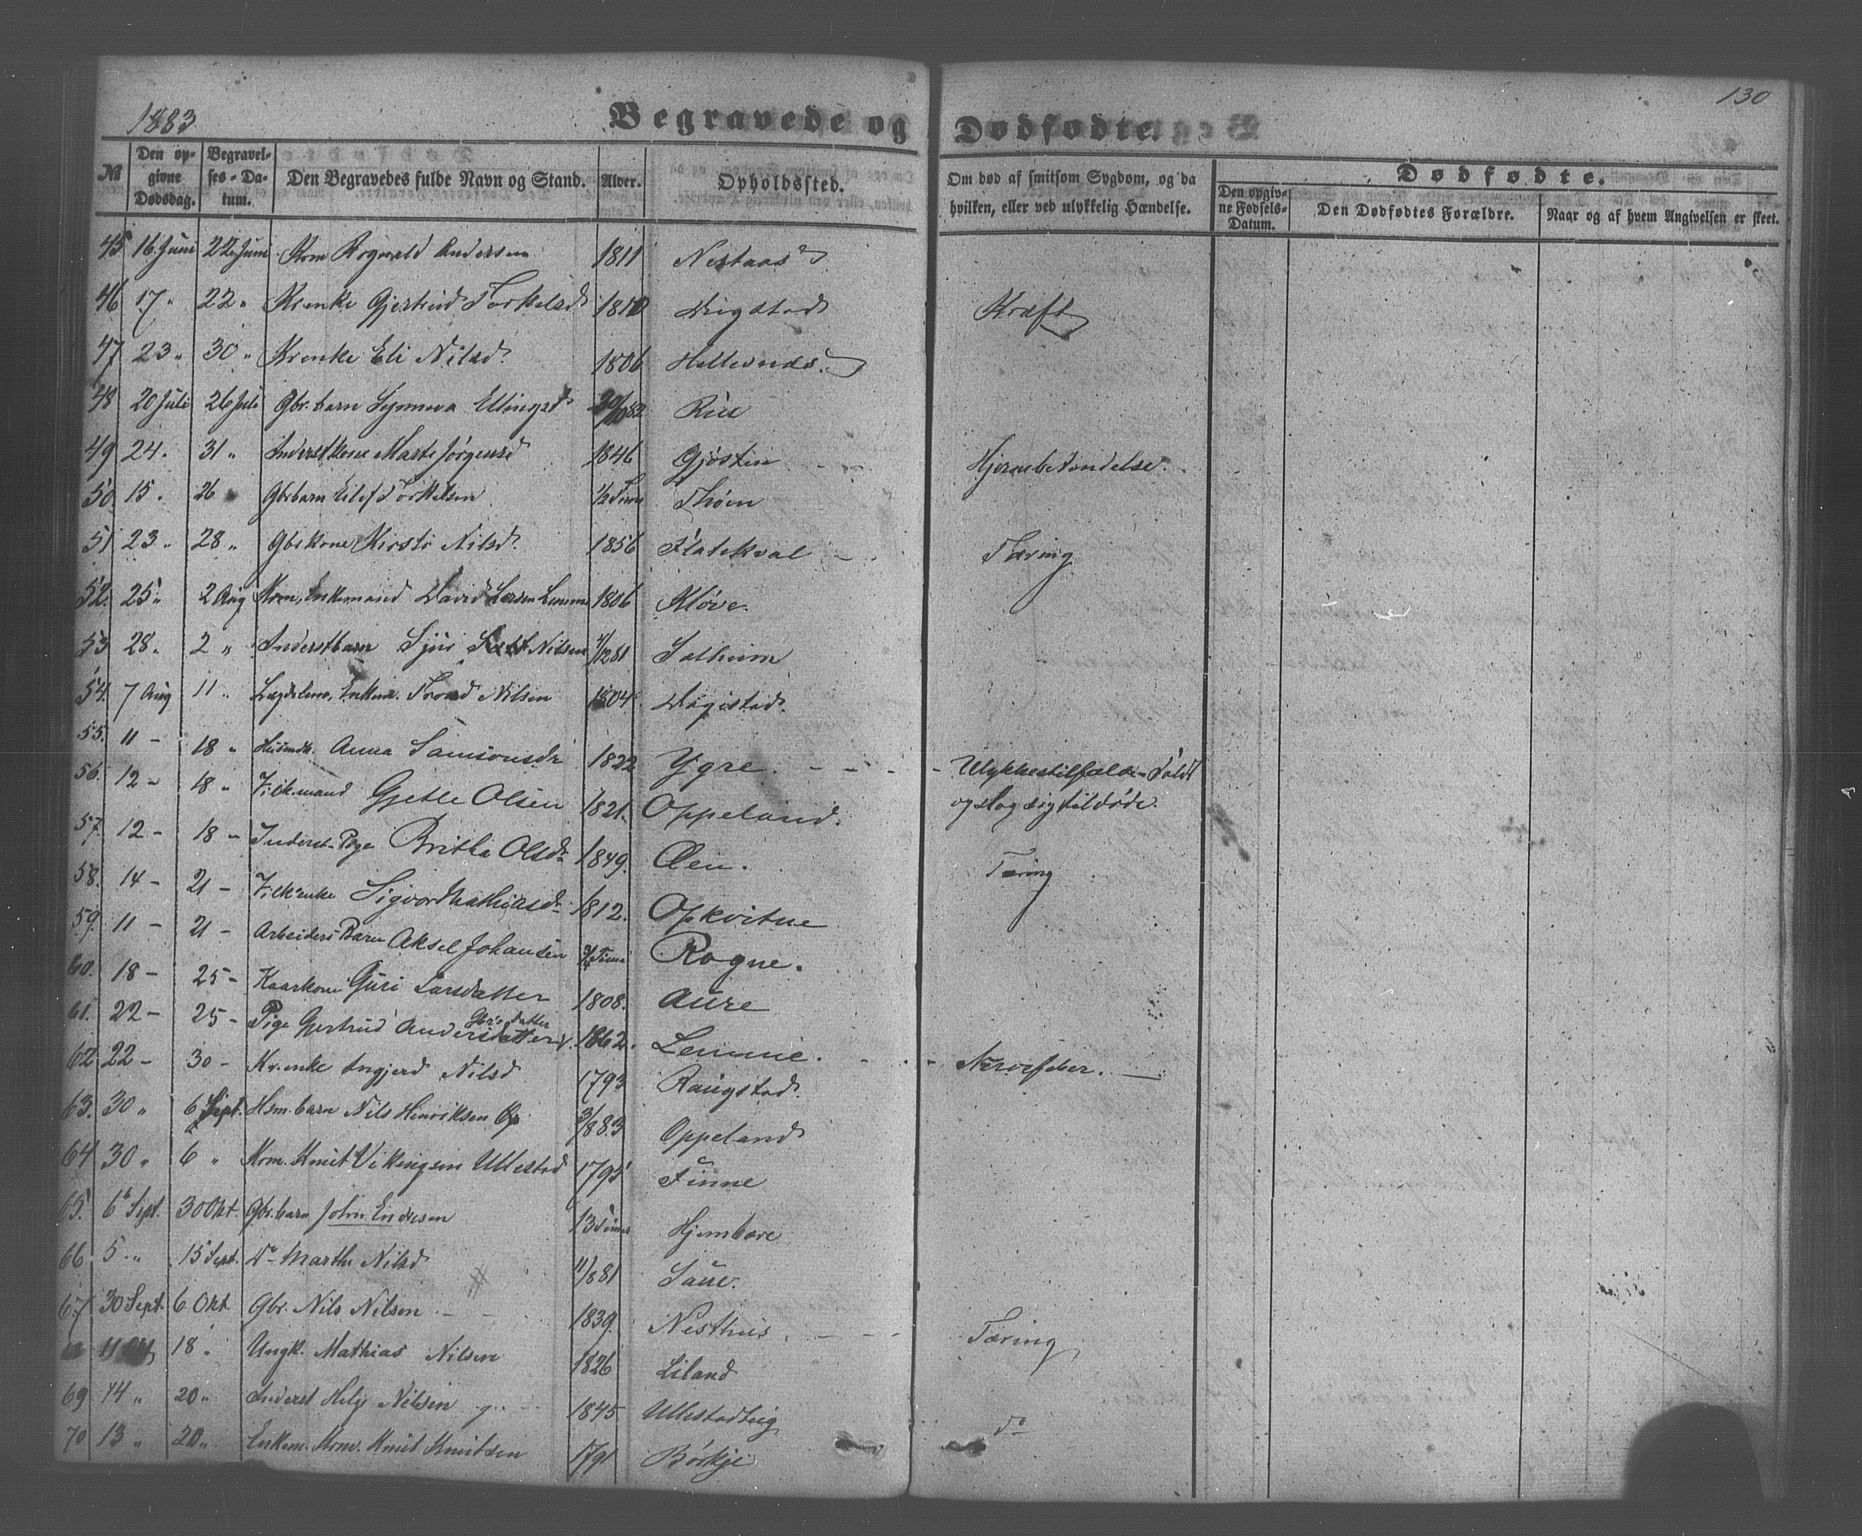 1883 Begravede og Dødfødte. 130
No. Den opgivne Dødsdag. Begravelses-Datum. Den Begravedes fulde Navn og Stand. Alder. Opholdssted. Om død af smitsom Sygdom, og da hvilken, eller ved ulykkelig Hændelse. Dødfødte. Den opgivne Fødsels-Datum. Den Dødfødtes Forældre. Naar og af hvem Angivelsen er skeet.
45 16 Juni 22 Juni Krm Rognald Andersen 1811 Nestaas
46 17 " 22 " Krenke Gjertrud Torkelsd 1810 Dugstad Kræft
47 23 " 30 " Krenke Eli Nilsd. 1806 Hellesnds.
48 20 Juli 26 Juli Gbr. barn Synneva Ellingsd Riu
49 24 " 31 " Inderstkone Marte Jørgensd 1846 Gjøstein Hjernebetændelse.
50. 15. 26 Gbrbarn Eilef Torkelsen 1/2 Time Thøen
51 23 " 28 " Gbrkone Kirsti Nilsd. 1856 Flatekval - Tæring
52. 25 " 2 Aug Krm, Enkemand David Larsen Lemme 1806 Kløve.
53 28. 2 " Inderstbarn Sjur Nilsen 4/1281 Solheim
54. 7 Aug 11 " Lægdslem, Enkem. Trond Nilsen 1804 Dagestad.
55. 11 - 18 " Husmdk. Anna Samsonsdr 1822 Ygre. - - - - Ulykkestilfælde - Faldt
56. 12 - 18 " Vilkmand Gjetle Olsen 1821. Oppeland. og slog sig tildøde.
57. 12 - 18 - Inderst Pige Britha Olsdr 1849. Øen. Tæring
58. 14 - 21 - Vilkenke Sigvor Mathiasdr 1812. Opkvitne
59. 11 - 21 - Arbeiders Barn Aksel Johansen 3/4 Time Rogne.
60. 18 - 25 - Kaarkone Guri Larsdatter 1808. Aure
61. 22 - 25 - Pige Gjertrud Andersdatter 1862. Lemme. - - - Nervefeber. -
62 22 - 30 - Kr. enke Ingjerd Nilsd 1793 Raugstad.
63. 30 " 6 Sept. Hsm. barn Nils Henriksen 3/883 Oppeland
64 30 " 6 " Krm. Knut Vikingsen Ullestad 1795 Finne
65. 6 Sept. 30 Okt. Gbr. barn John Endresen 13 Timer Hjembøre
66 5 " 15 Sept. Do Marthe Nilsd 11/881 Saue.
67 30 Sept. 6 Okt. Gbr. Nils Nilsen - - 1839. Nesthus. - - - Tæring
18 " Ungk. Mathias Nilsen 1826 Liland
69 14 " 20 " Inderst Helge Nilsen 1845 Ullestadteig do
70 13 " 20 " Enkem. Krm. Knut Knutsen 1791 Børkje